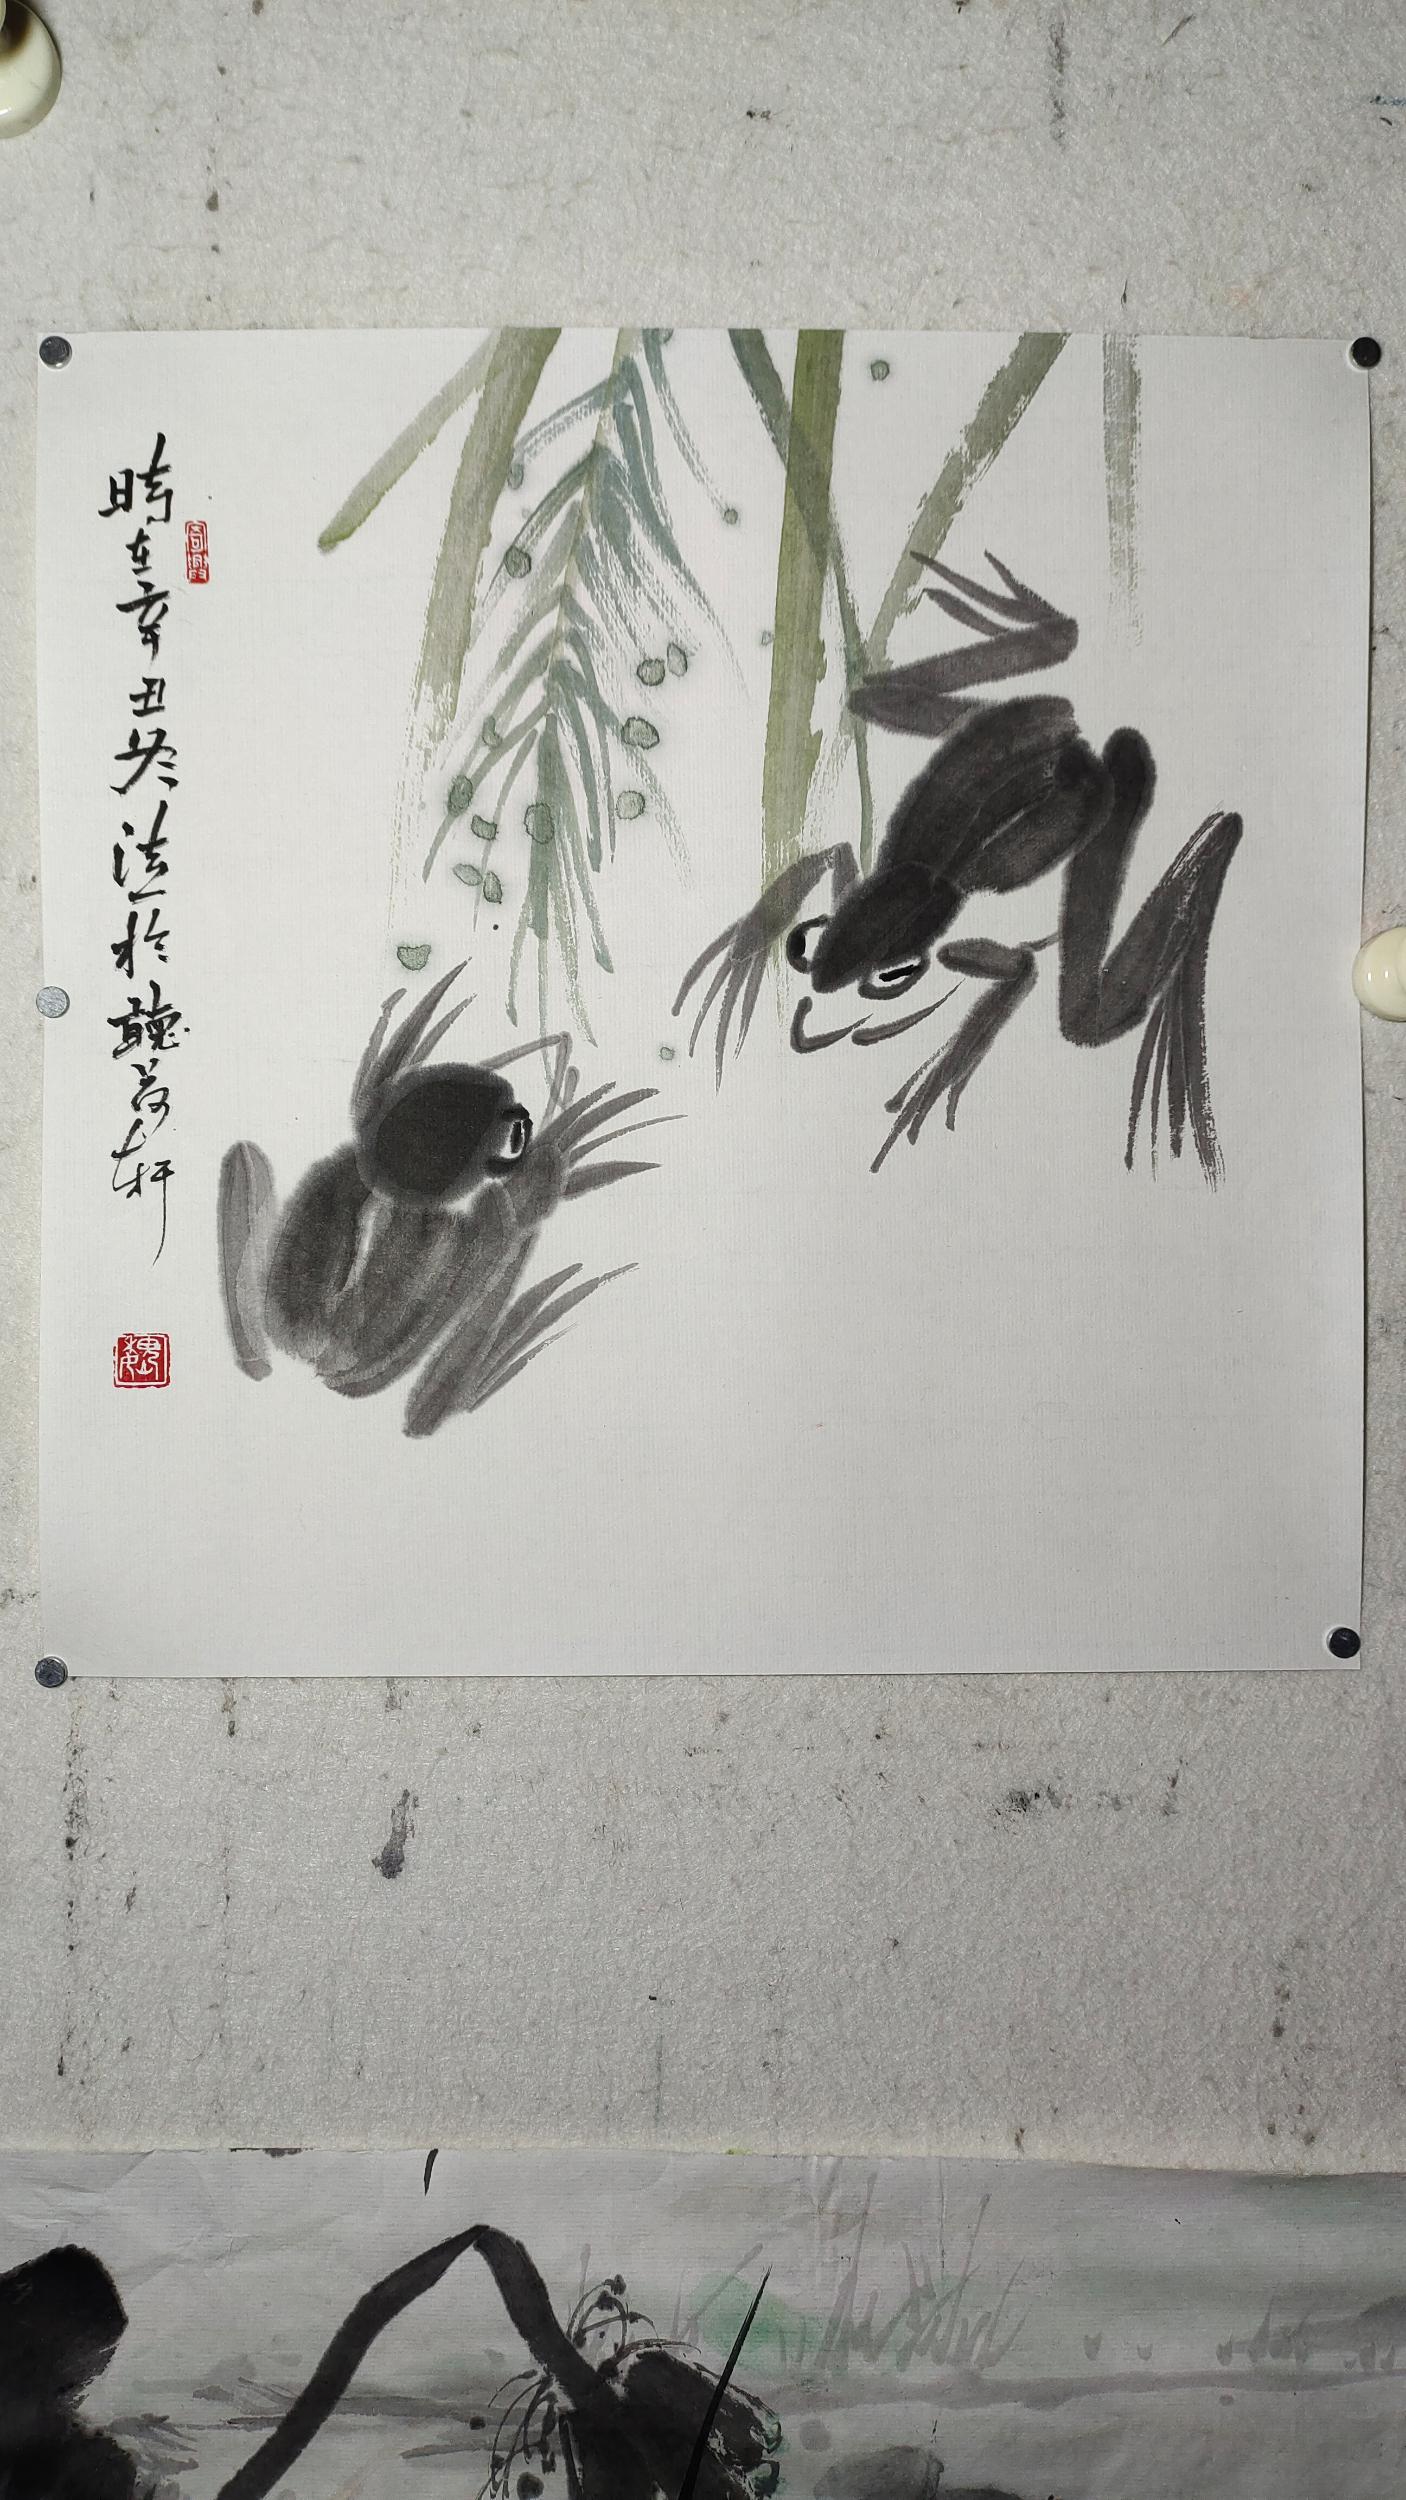 時在辛丑冬法於聽荷軒
魏